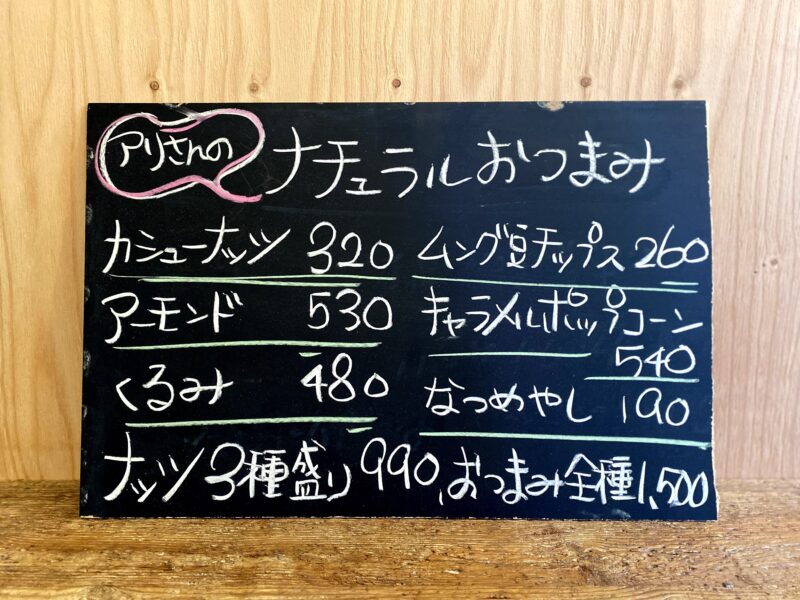 アリさんの ナチュラルおつまみ
カシューナッツ 320
アーモンド 530
くるみ 480
ムング豆チップス 260
キャラメルポップコーン
540
なつめやし 190
ナッツ3種盛り 990、おつまみ全種1,500